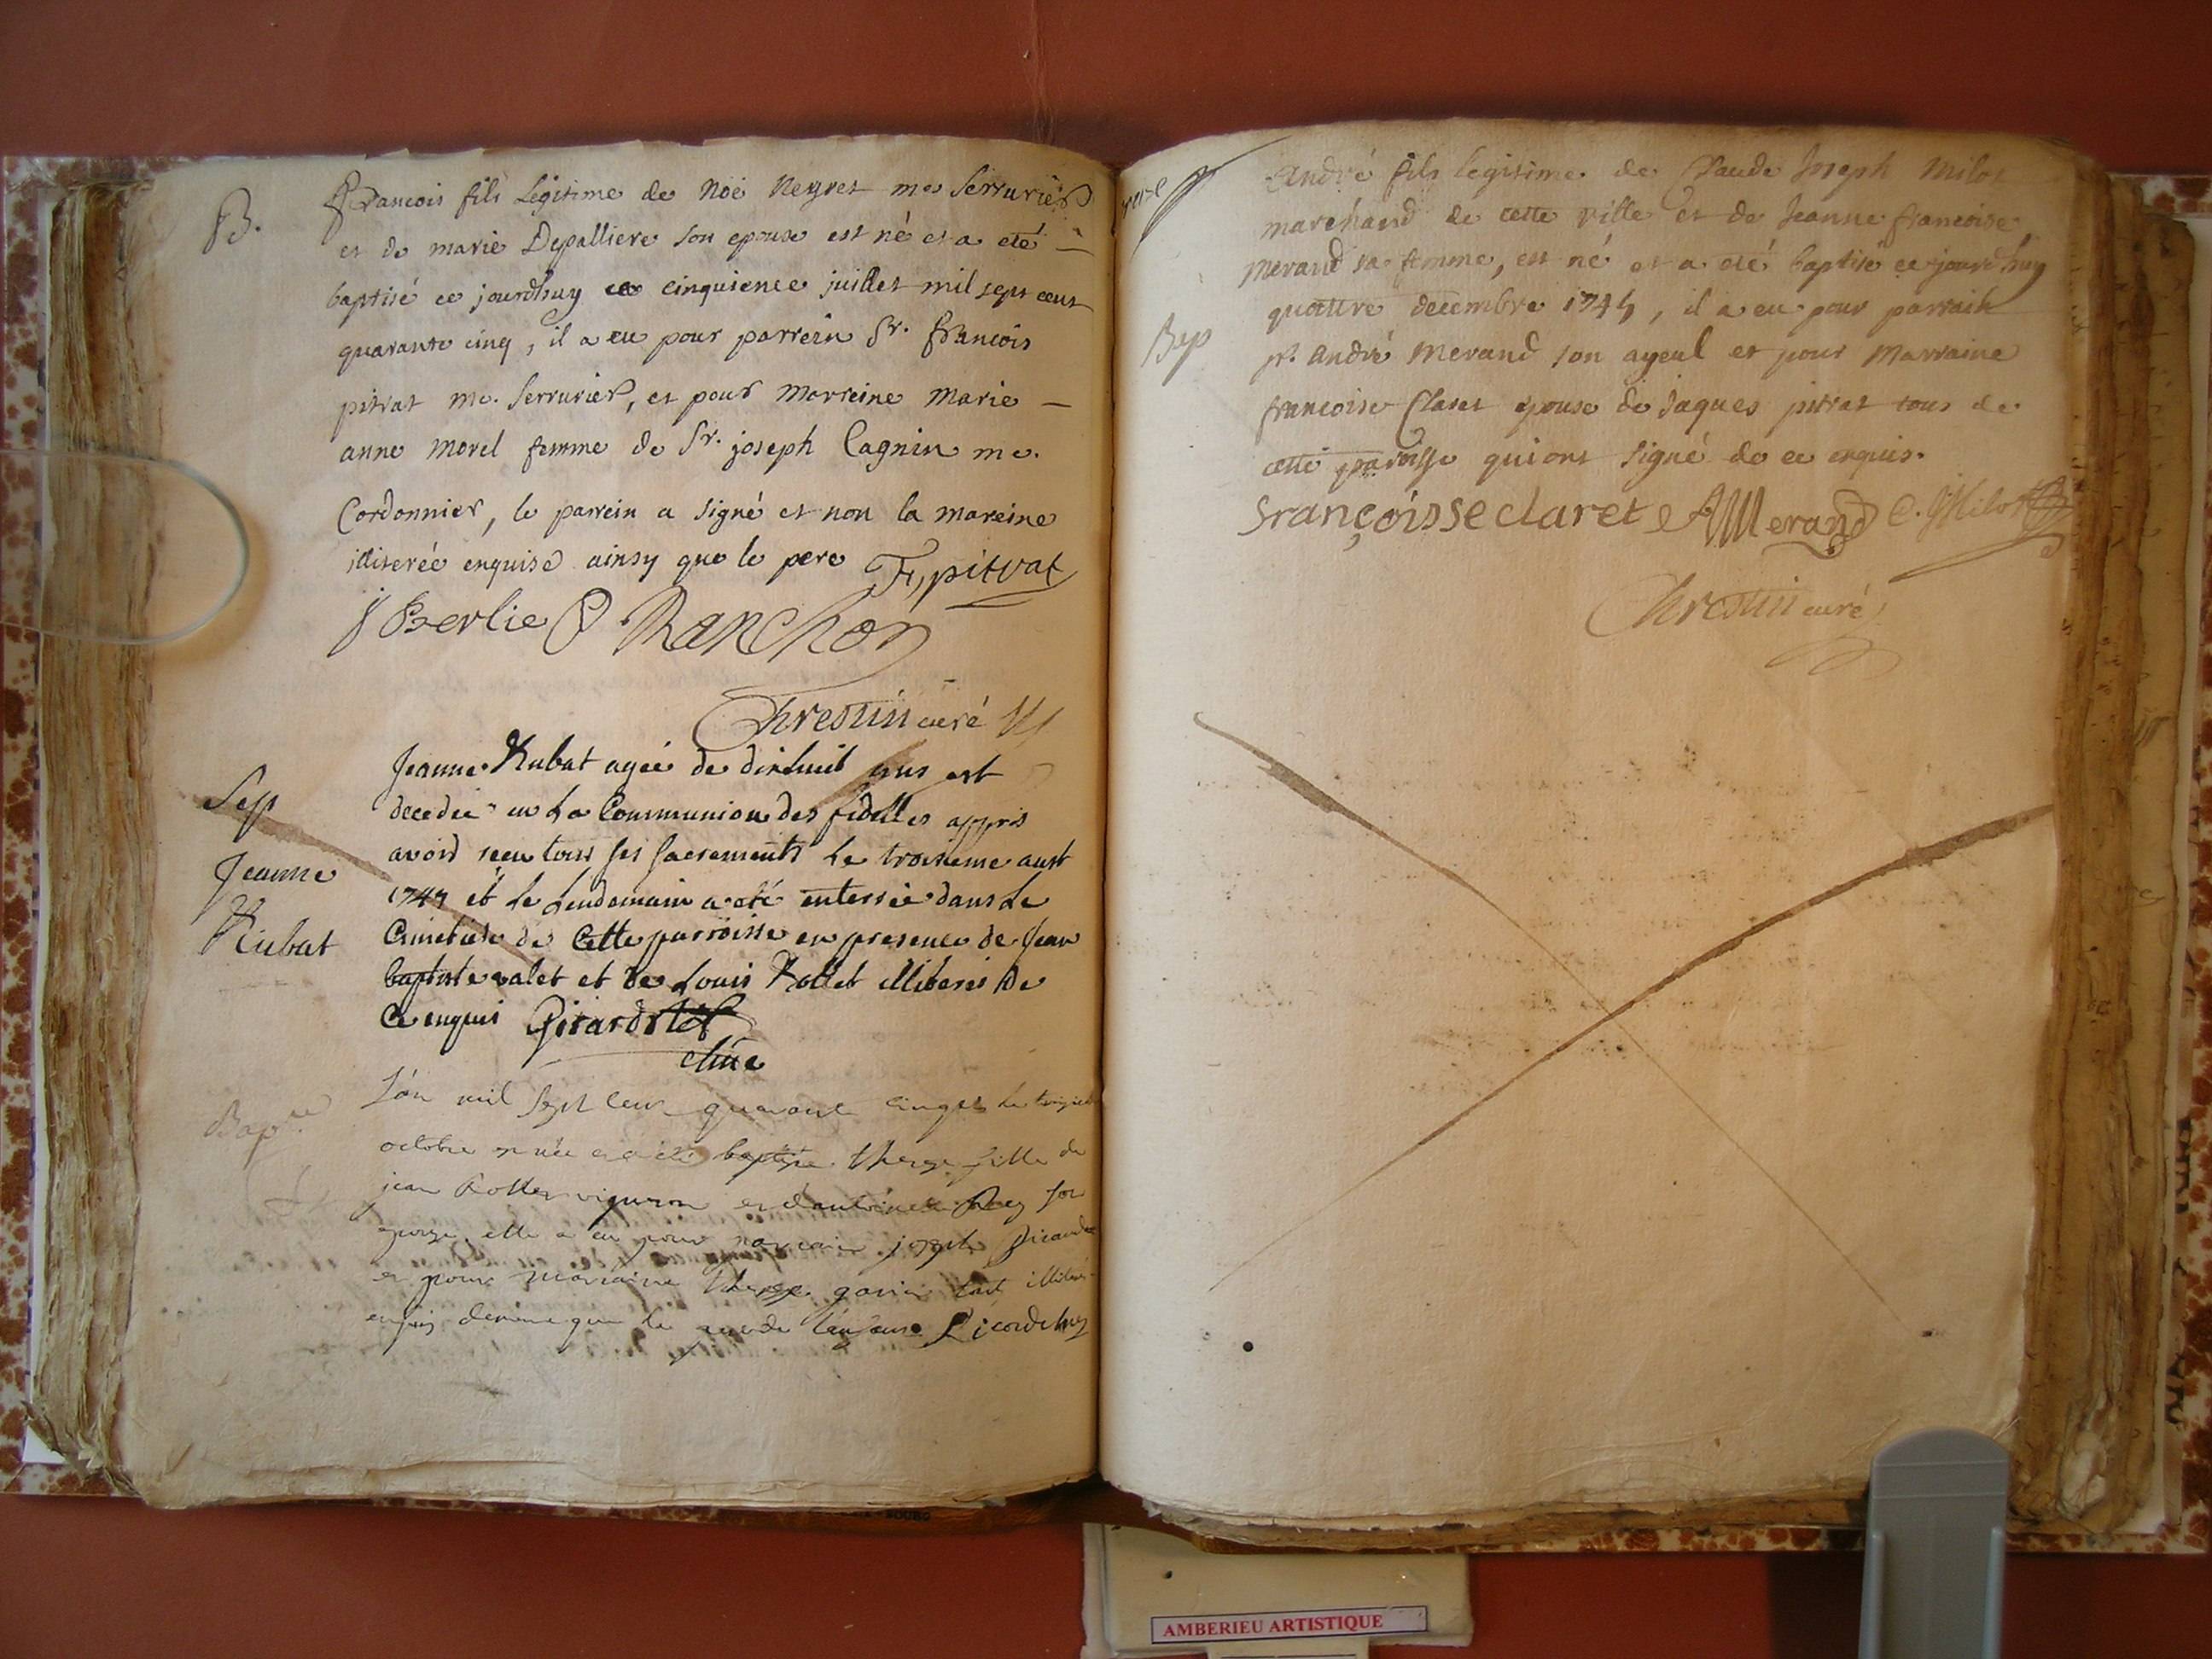 B.
francois fils Legitime de Noë Neyret me Serrurier
et de marie Depalliere son epouse est né et a eté —
baptisé ce jourdhuy ce cinquieme juillet mil sept cent
quarante cinq, il a eu pour parrein Sr. francois
pitrat me. Serrurier, et pour Marreine Marie —
anne Morel femme de Sr. joseph Cagnin me.
Cordonnier, le parrein a signé et non la mareine
illiterée enquise ainsy que le pere F, pitrat
j Berlie Ranchon
Chrestin curé
Sep
Jeanne
Rubat
Jeanne Rubat agée de dixhuit ans est
decedée en la Communion des fidelles appris
avoir receu tous ses sacrements le troisieme aust
1745 et le lendemain a été enterrée dans le
Cimetiere de Cette parroisse en presence de Jean
baptiste valet et de Louis Rollet illiterés de
Ce enquis Girardet
Bap.
L'an mil sept cent quarante cinq et le
octobre née et a été baptisée therese fille de
jean Rollet vigneron et d'antoinette Rey son
epouse elle a eu pour parrain joseph
et pour marraine therese tout
enquis de même que le de
André fils legitime de Claude Joseph Milot
marchand de cette ville et de Jeanne francoise
Merand sa femme, est né et a été baptisé ce jourdhuy
quattre decembre 1745, il a eu pour parrain
Bap
sr. André Merand son ayeul et pour Marraine
francoise Claret epouse de Jaques pitrat tous de
cette paroisse qui ont signé de ce enquis.
Françoisse claret A Merand C. Milot
Chrestin curé
AMBERIEU ARTISTIQUE